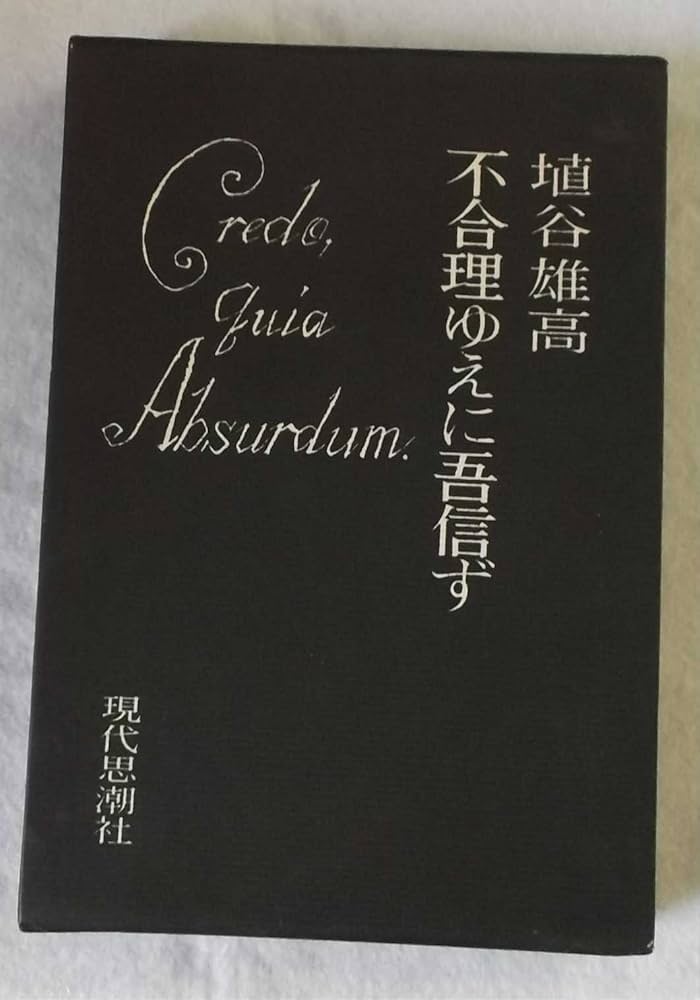 埴谷雄高
不合理ゆえに吾信ず
Credo,
quia
Absurdum.
現代思潮社